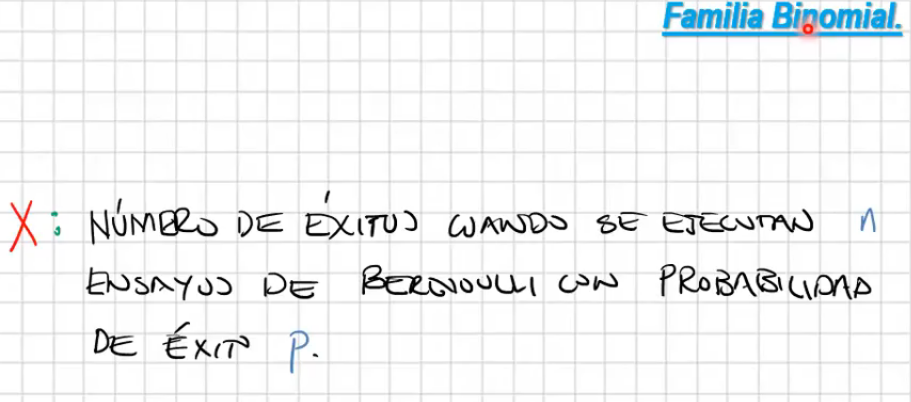 Familia Binomial.
X: NÚMERO DE ÉXITOS CUANDO SE EJECUTAN n
ENSAYOS DE BERNOULLI CON PROBABILIDAD
DE ÉXITO p.